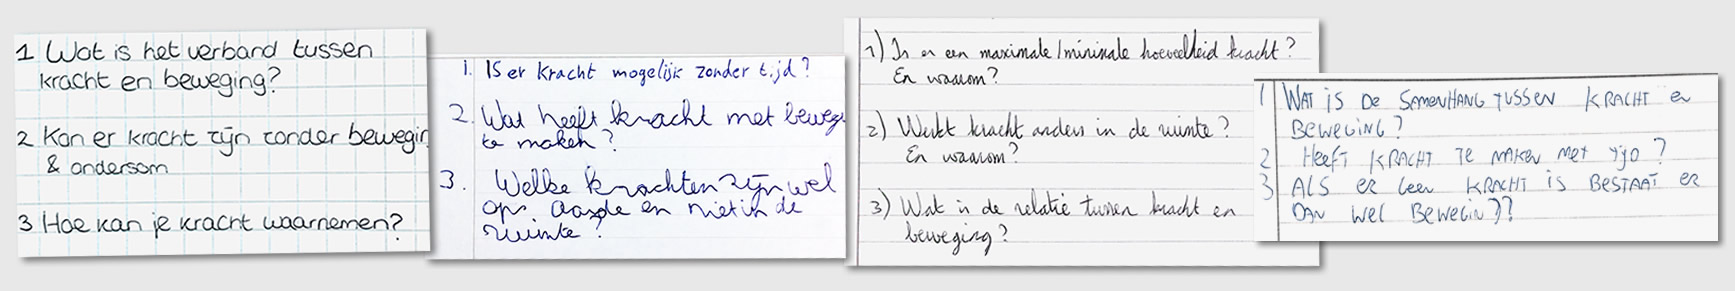 1 Wat is het verband tussen
kracht en beweging?
2 Kan er kracht zijn zonder bewegin
& andersom
3 Hoe kan je kracht waarnemen?
1. Is er kracht mogelijk zonder tijd?
2. Wat heeft kracht met bewegi
te maken?
3. Welke krachten zijn wel
op aarde en niet in de
ruimte?
1) Is er een maximale/minimale hoeveelheid kracht?
En waarom?
2) Werkt kracht anders in de ruimte?
En waarom?
3) Wat is de relatie tussen kracht en
beweging?
1 WAT IS DE SAMENHANG TUSSEN KRACHT EN
BEWEGING?
2 HEEFT KRACHT TE MAKEN MET TIJD?
3 ALS ER GEEN KRACHT IS BESTAAT ER
DAN WEL BEWEGING?